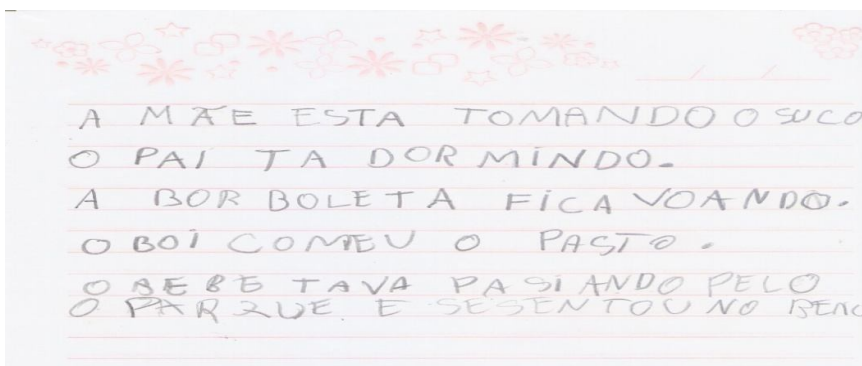 A MÃE ESTA TOMANDO O SUCO
O PAI TA DORMINDO.
A BORBOLETA FICA VOANDO.
O BOI COMEU O PASTO.
O BEBE TAVA PASIANDO PELO
O PARQUE E SESENTOU NO